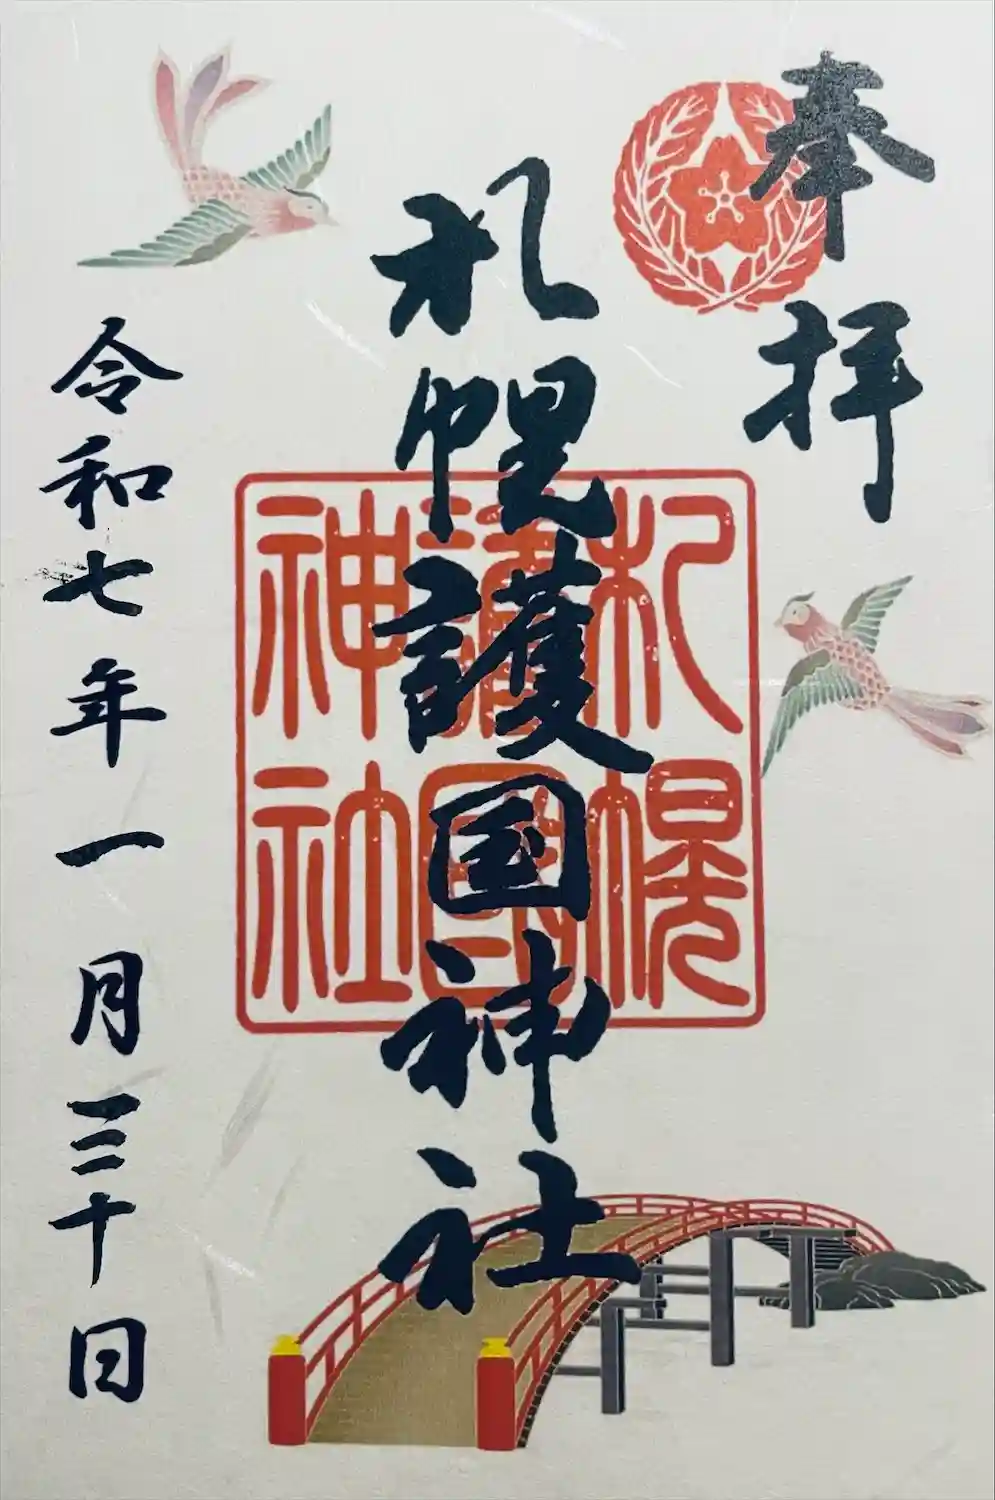 奉拝
札幌護国神社
札幌
護國
神社
令和七年一月三十日